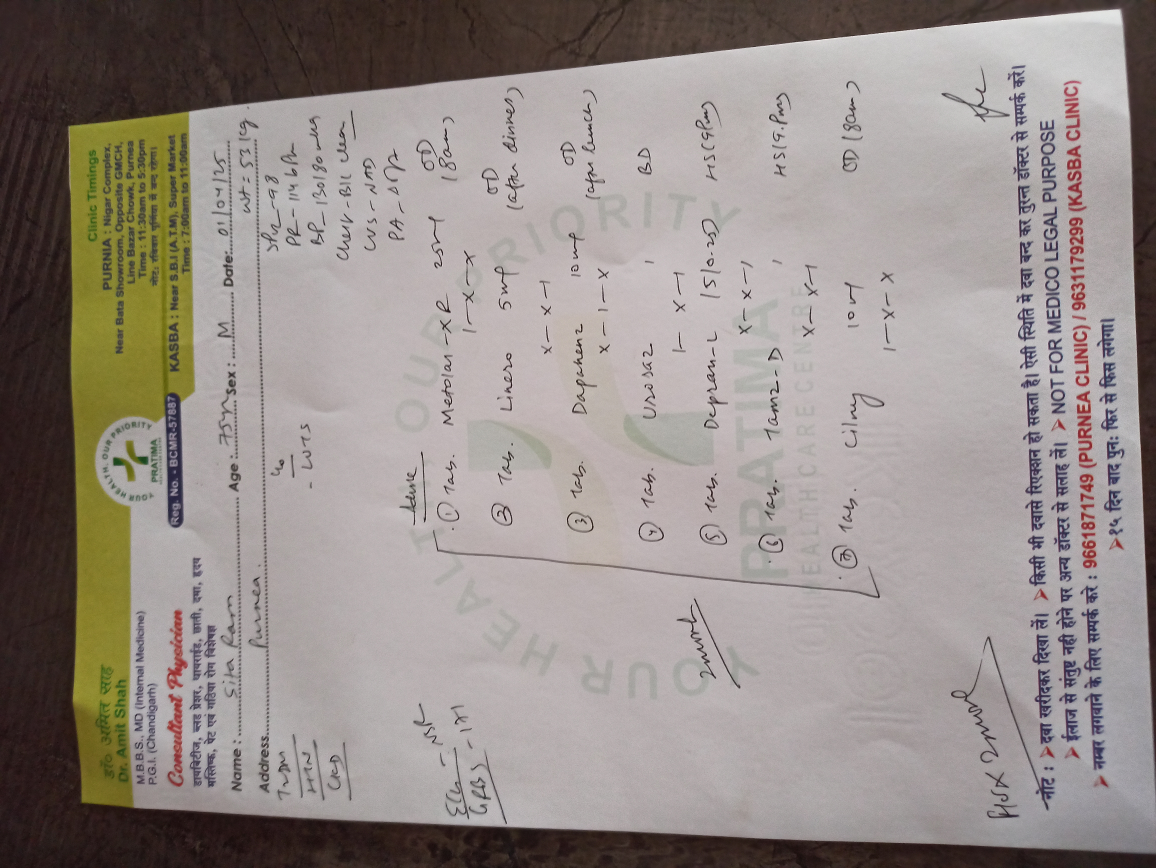 डॉ० अमित साह
Dr. Amit Shah
M.B.B.S., MD (Internal Medicine)
P.G.I. (Chandigarh)
Consultant Physician
डायबिटीज, ब्लड प्रेशर, थायराईड, छाती, दमा, हृदय
मस्तिष्क, पेट एवं गठिया रोग विशेषज्ञ
YOUR HEALTH, OUR PRIORITY
PRATIMA
Reg. No. - BCMR-57887
Clinic Timings
PURNIA : Nigar Complex,
Near Bata Showroom, Opposite GMCH,
Line Bazar Chowk, Purnea
Time : 11:30am to 5:30pm
KASBA : Near S.B.I (A.T.M), Super Market
Time : 7:00am to 11:00am
Name : Sita Ram Age : 75 Sex : M Date: 01/04/25
Address Purnea
wt = 53 kg
T2DM
HTN
CKD
c/o
- LUTS
SPO2 - 98
PR - 114 b/m
BP - 130/80 mmHg
Chest - B/L clear
CVS - NAD
PA -
ECG - NSR
GRBS - 171
Advise
① Tab. Metolar-XR 25mg OD (8am)
1-x-x
② Tab. Linero 5mg OD (after dinner)
x-x-1
③ Tab. 10mg OD (after lunch)
x-1-x
④ Tab. BD
1-x-1
⑤ Tab. HS (9pm)
x-x-1
⑥ Tab. Tamz-D HS (9pm)
x-x-1
⑦ Tab. Cilny 10mg OD (8am)
1-x-x
YOUR HEALTH OUR PRIORITY
PRATIMA
HEALTHCARE CENTRE
नोट : ➤ दवा खरीदकर दिखा लें। ➤ किसी भी दवासे रिएक्शन हो सकता है। ऐसी स्थिति में दवा बन्द कर तुरन्त डॉक्टर से सम्पर्क करें।
➤ ईलाज से संतुष्ट नही होने पर अन्य डॉक्टर से सलाह लें। ➤ NOT FOR MEDICO LEGAL PURPOSE
➤ नम्बर लगवाने के लिए सम्पर्क करे : 9661871749 (PURNEA CLINIC) / 9631179299 (KASBA CLINIC)
➤ १५ दिन बाद पुनः फिर से फिस लगेगा।